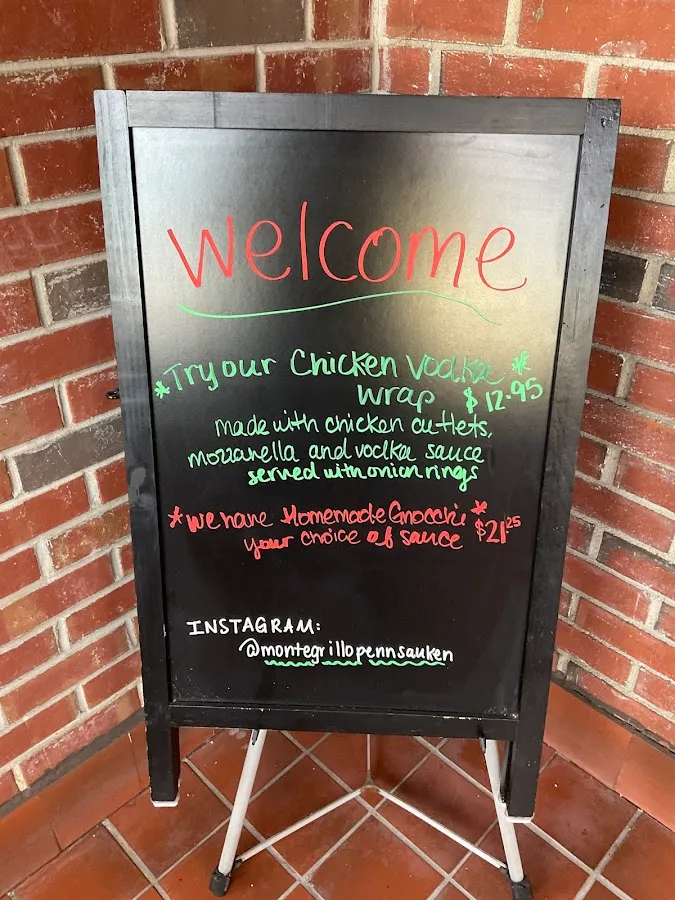 Welcome
*Try our Chicken Vodka *
Wrap $12.95
made with chicken cutlets,
mozzarella and vodka sauce
served with onion rings
*We have Homemade Gnocchi *
your choice of sauce $21.25
INSTAGRAM:
@montegrillopennsauken